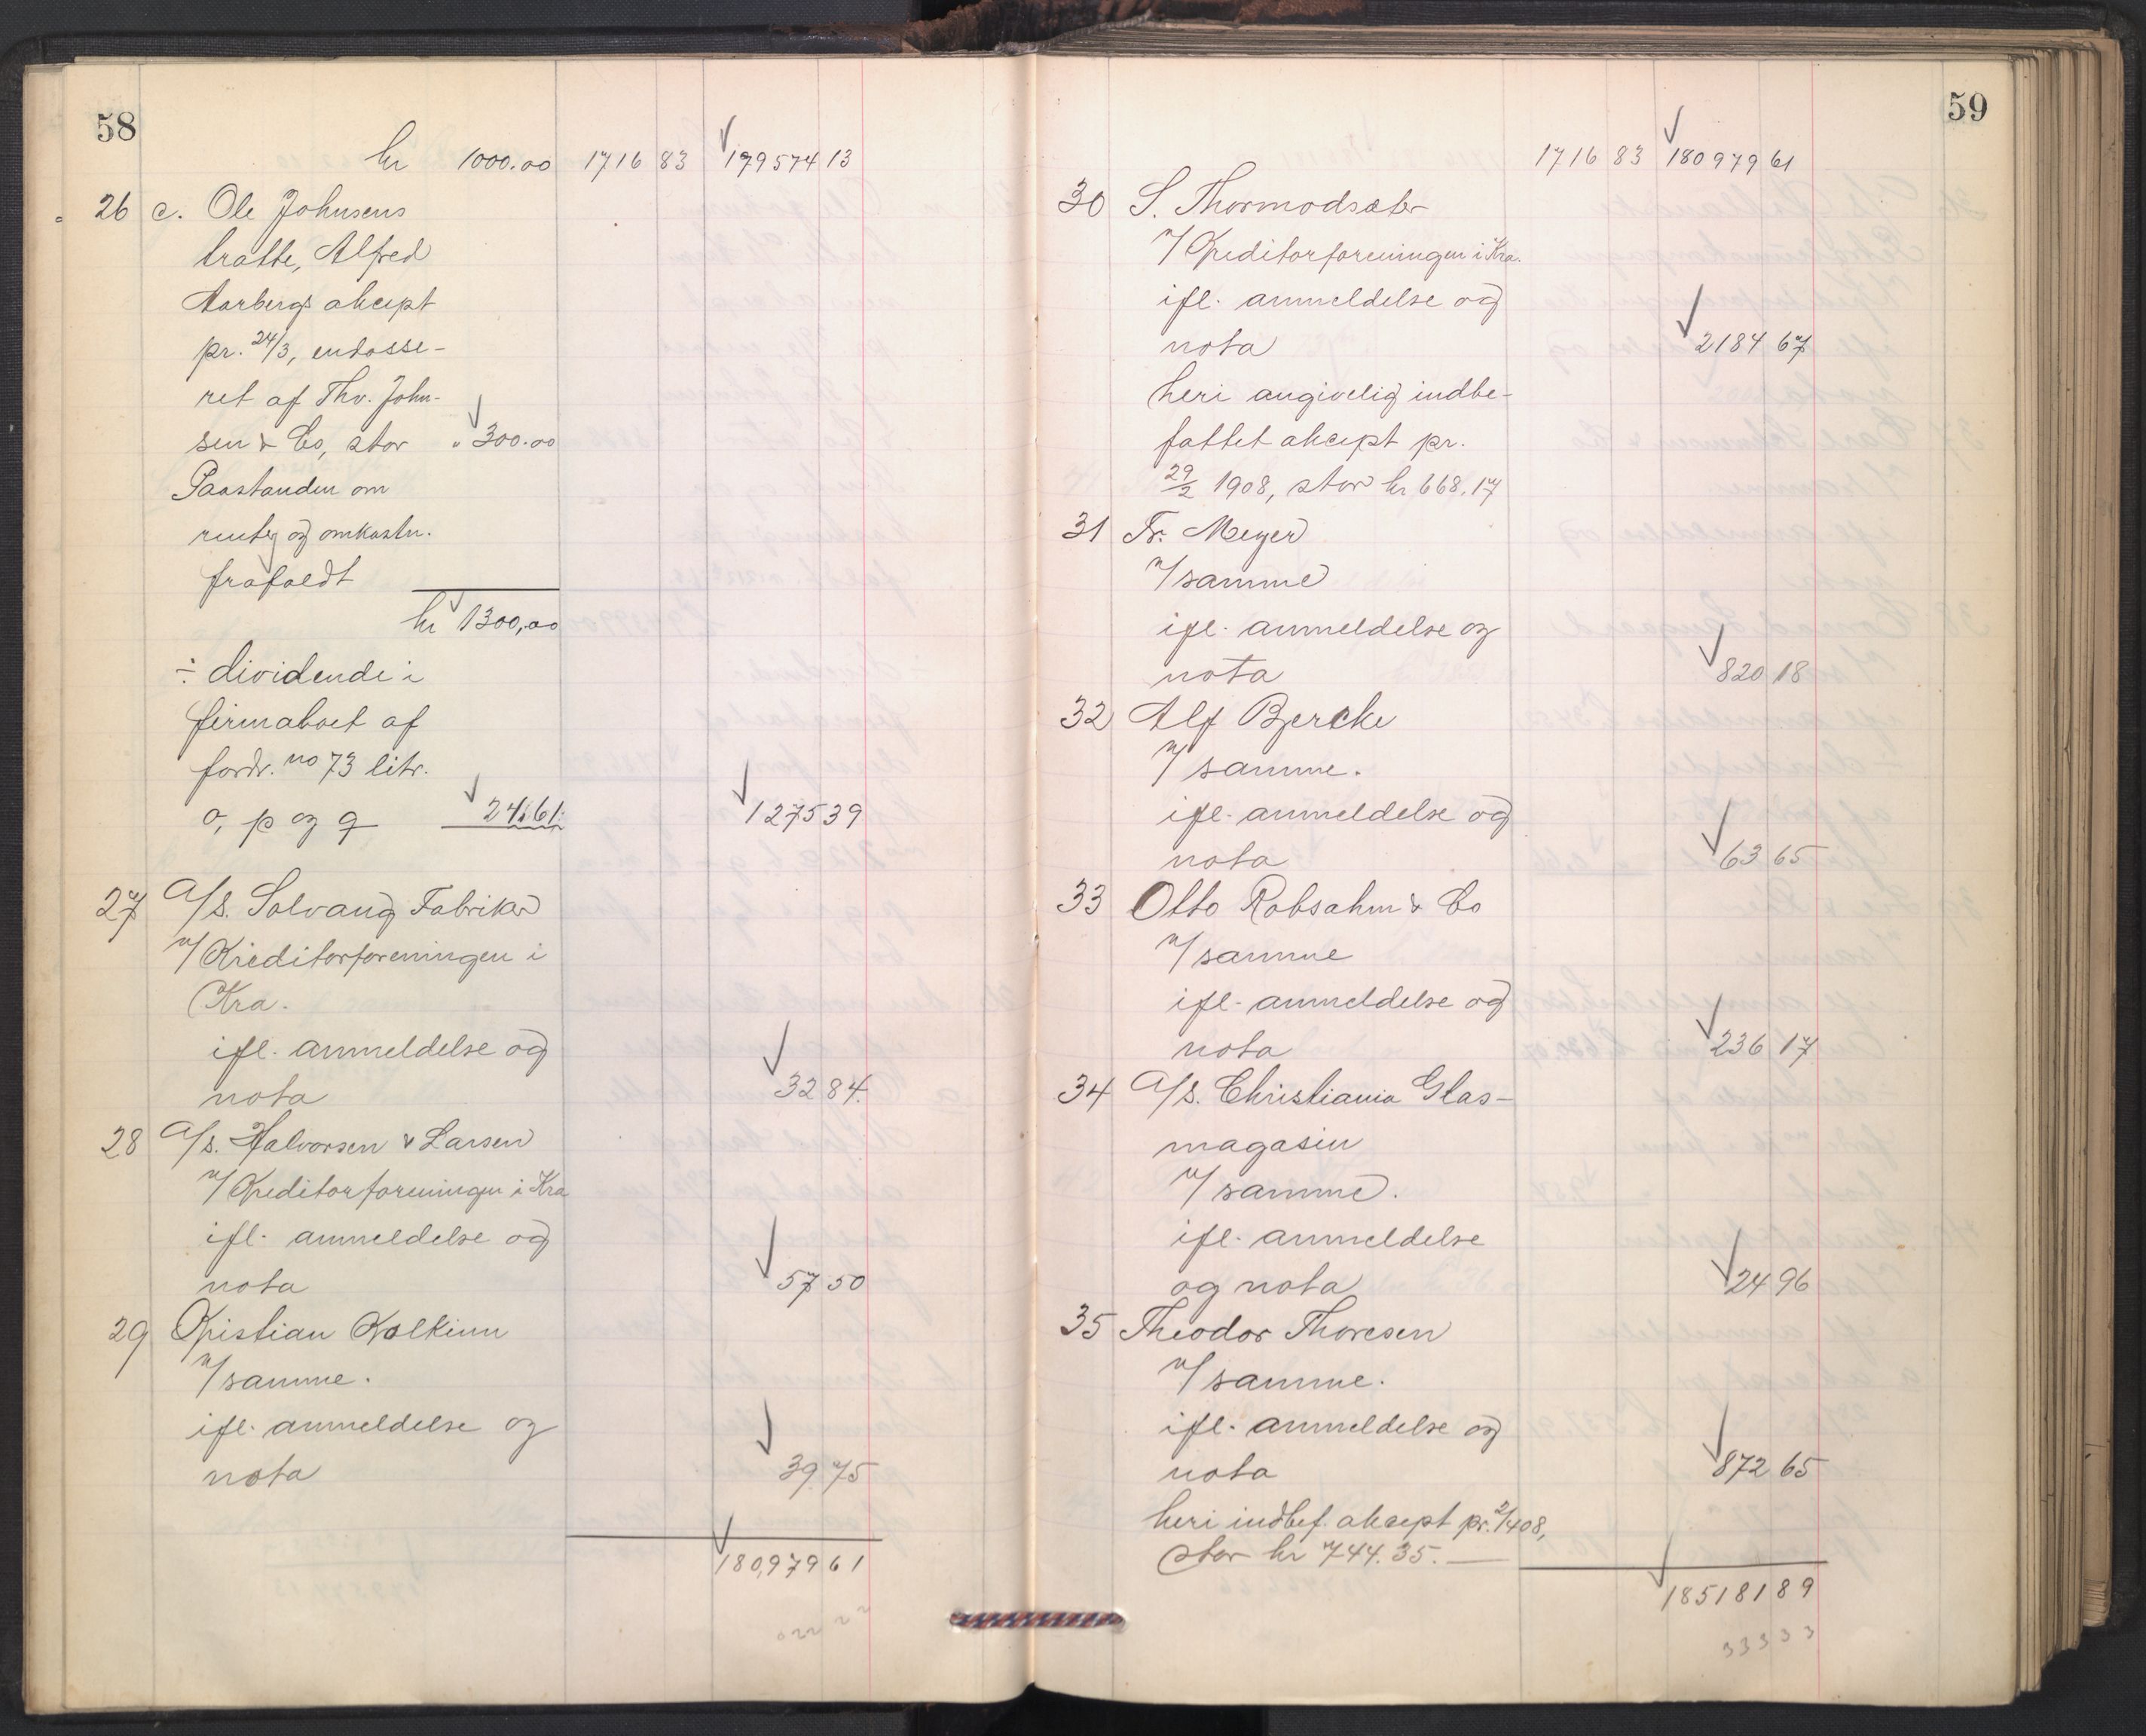 58
kr 1000.00 1716 83 179574 13
26 c. Ole Johnsens
tratte, Alfred
Aarbergs akcept
pr. 24/3, endosse-
ret af Thv. John-
sen & Co, stor " 300.00
Paastanden om
renter og omkostn.
frafaldt
kr 1300,00
÷ dividende i
firmaboet af
fordr. no 73 litr.
o, p og q 24.61. 1275 39
27 A/S. Solvang Fabriker
v/ Kreditorforeningen i
Kra.
ifl. anmeldelse og
nota 32 84.
28 A/S. Halvorsen & Larsen
v/ Kreditorforeningen i Kra
ifl. anmeldelse og
nota 57 50
29 Kristian Kolkinn
v/ samme.
ifl. anmeldelse og
nota 39.75
180,979 61
59
1716 83 180979 61
30 S. Thormodsæter
v/ Kreditorforeningen i Kra.
ifl. anmeldelse og
nota 2184 67
heri angivelig indbe-
fattet akcept pr.
29/2 1908, stor kr 668.17
31 Fr. Meyer
v/ samme
ifl. anmeldelse og
nota 820 18
32 Alf Bjercke
v/ samme.
ifl. anmeldelse og
nota 63 65
33 Otto Robsahm & Co
v/ samme
ifl. anmeldelse og
nota 236 17
34 A/S. Christiania Glas-
magasin
v/ samme.
ifl. anmeldelse
og nota 24 96
35 Theodor Thoresen
v/ samme.
ifl. anmeldelse og
nota 872 65
heri indbef. akcept pr. 2/4 08,
stor kr 744.35.
185181 89
33333